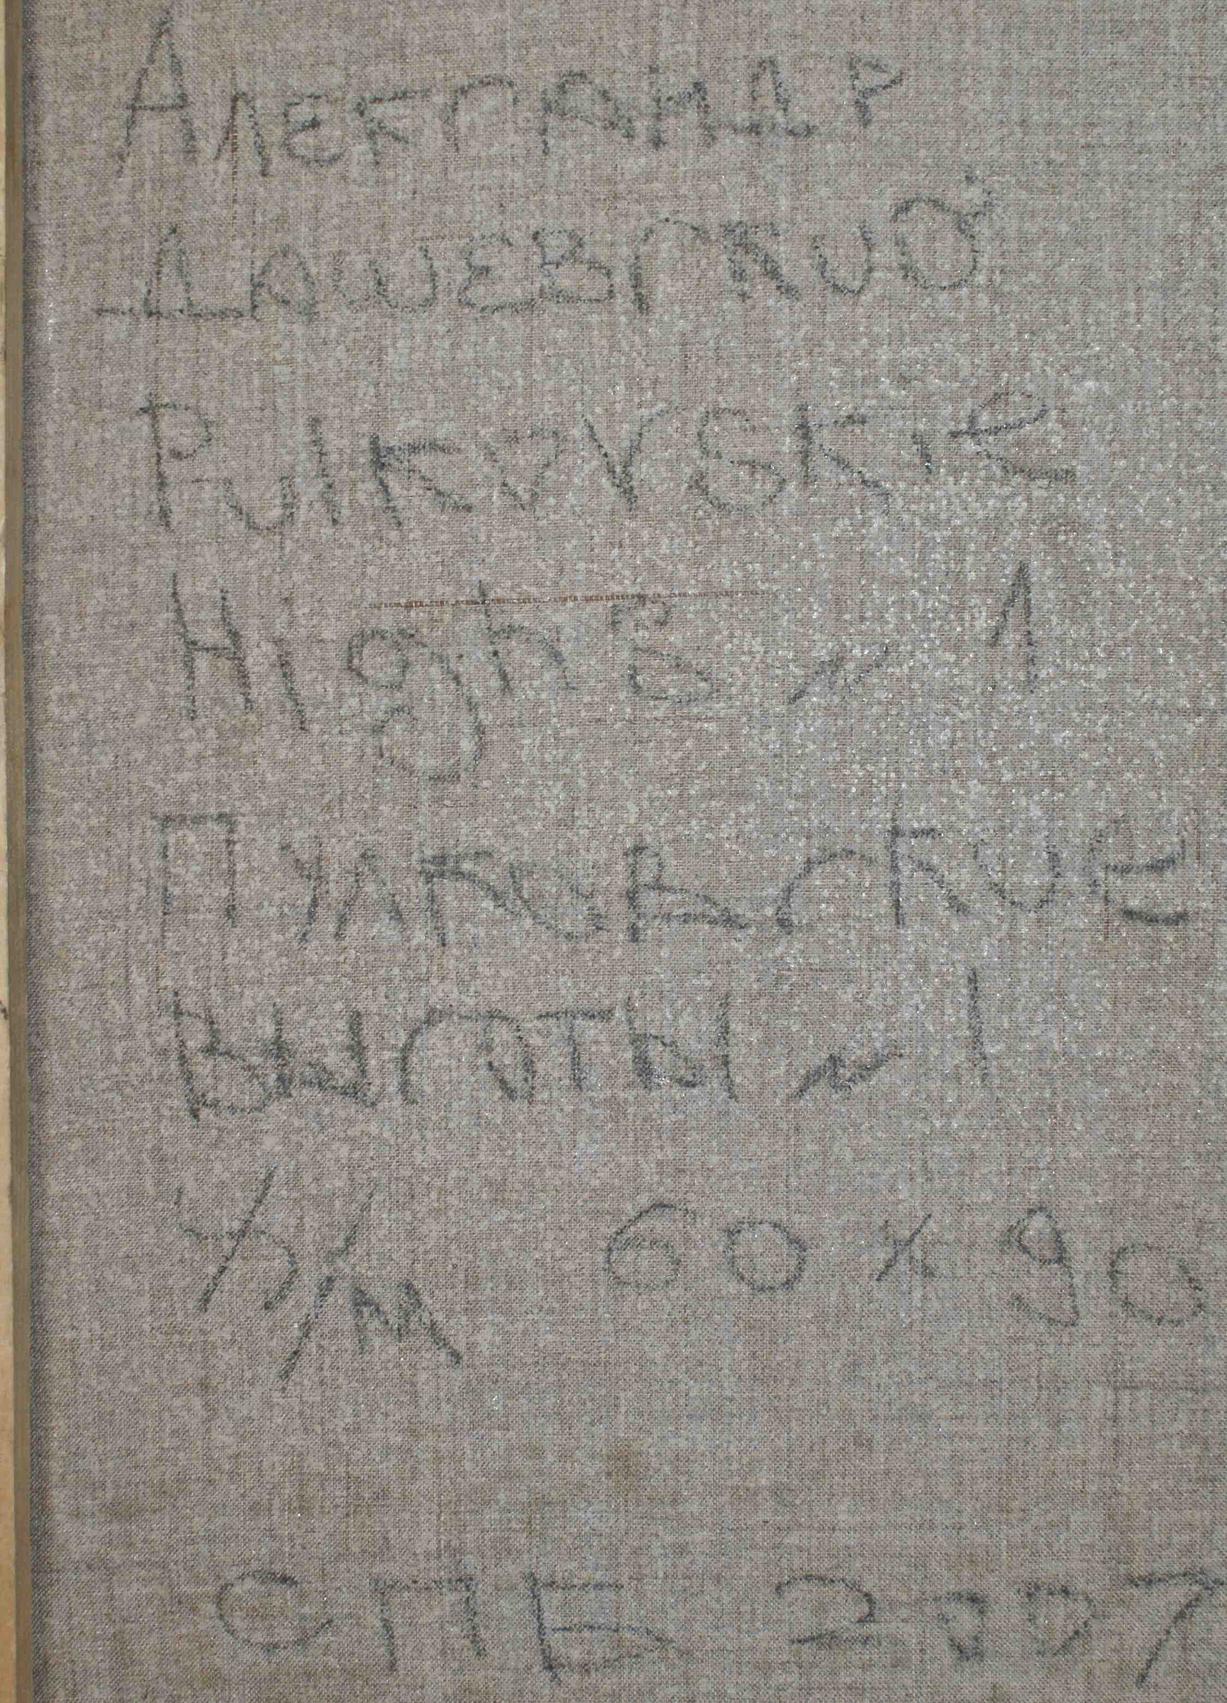 Александр
Дашевский
Pulkovskie
Highs № 1
Пулковские
высоты № 1
х/м 60 x 90
СПБ 2007